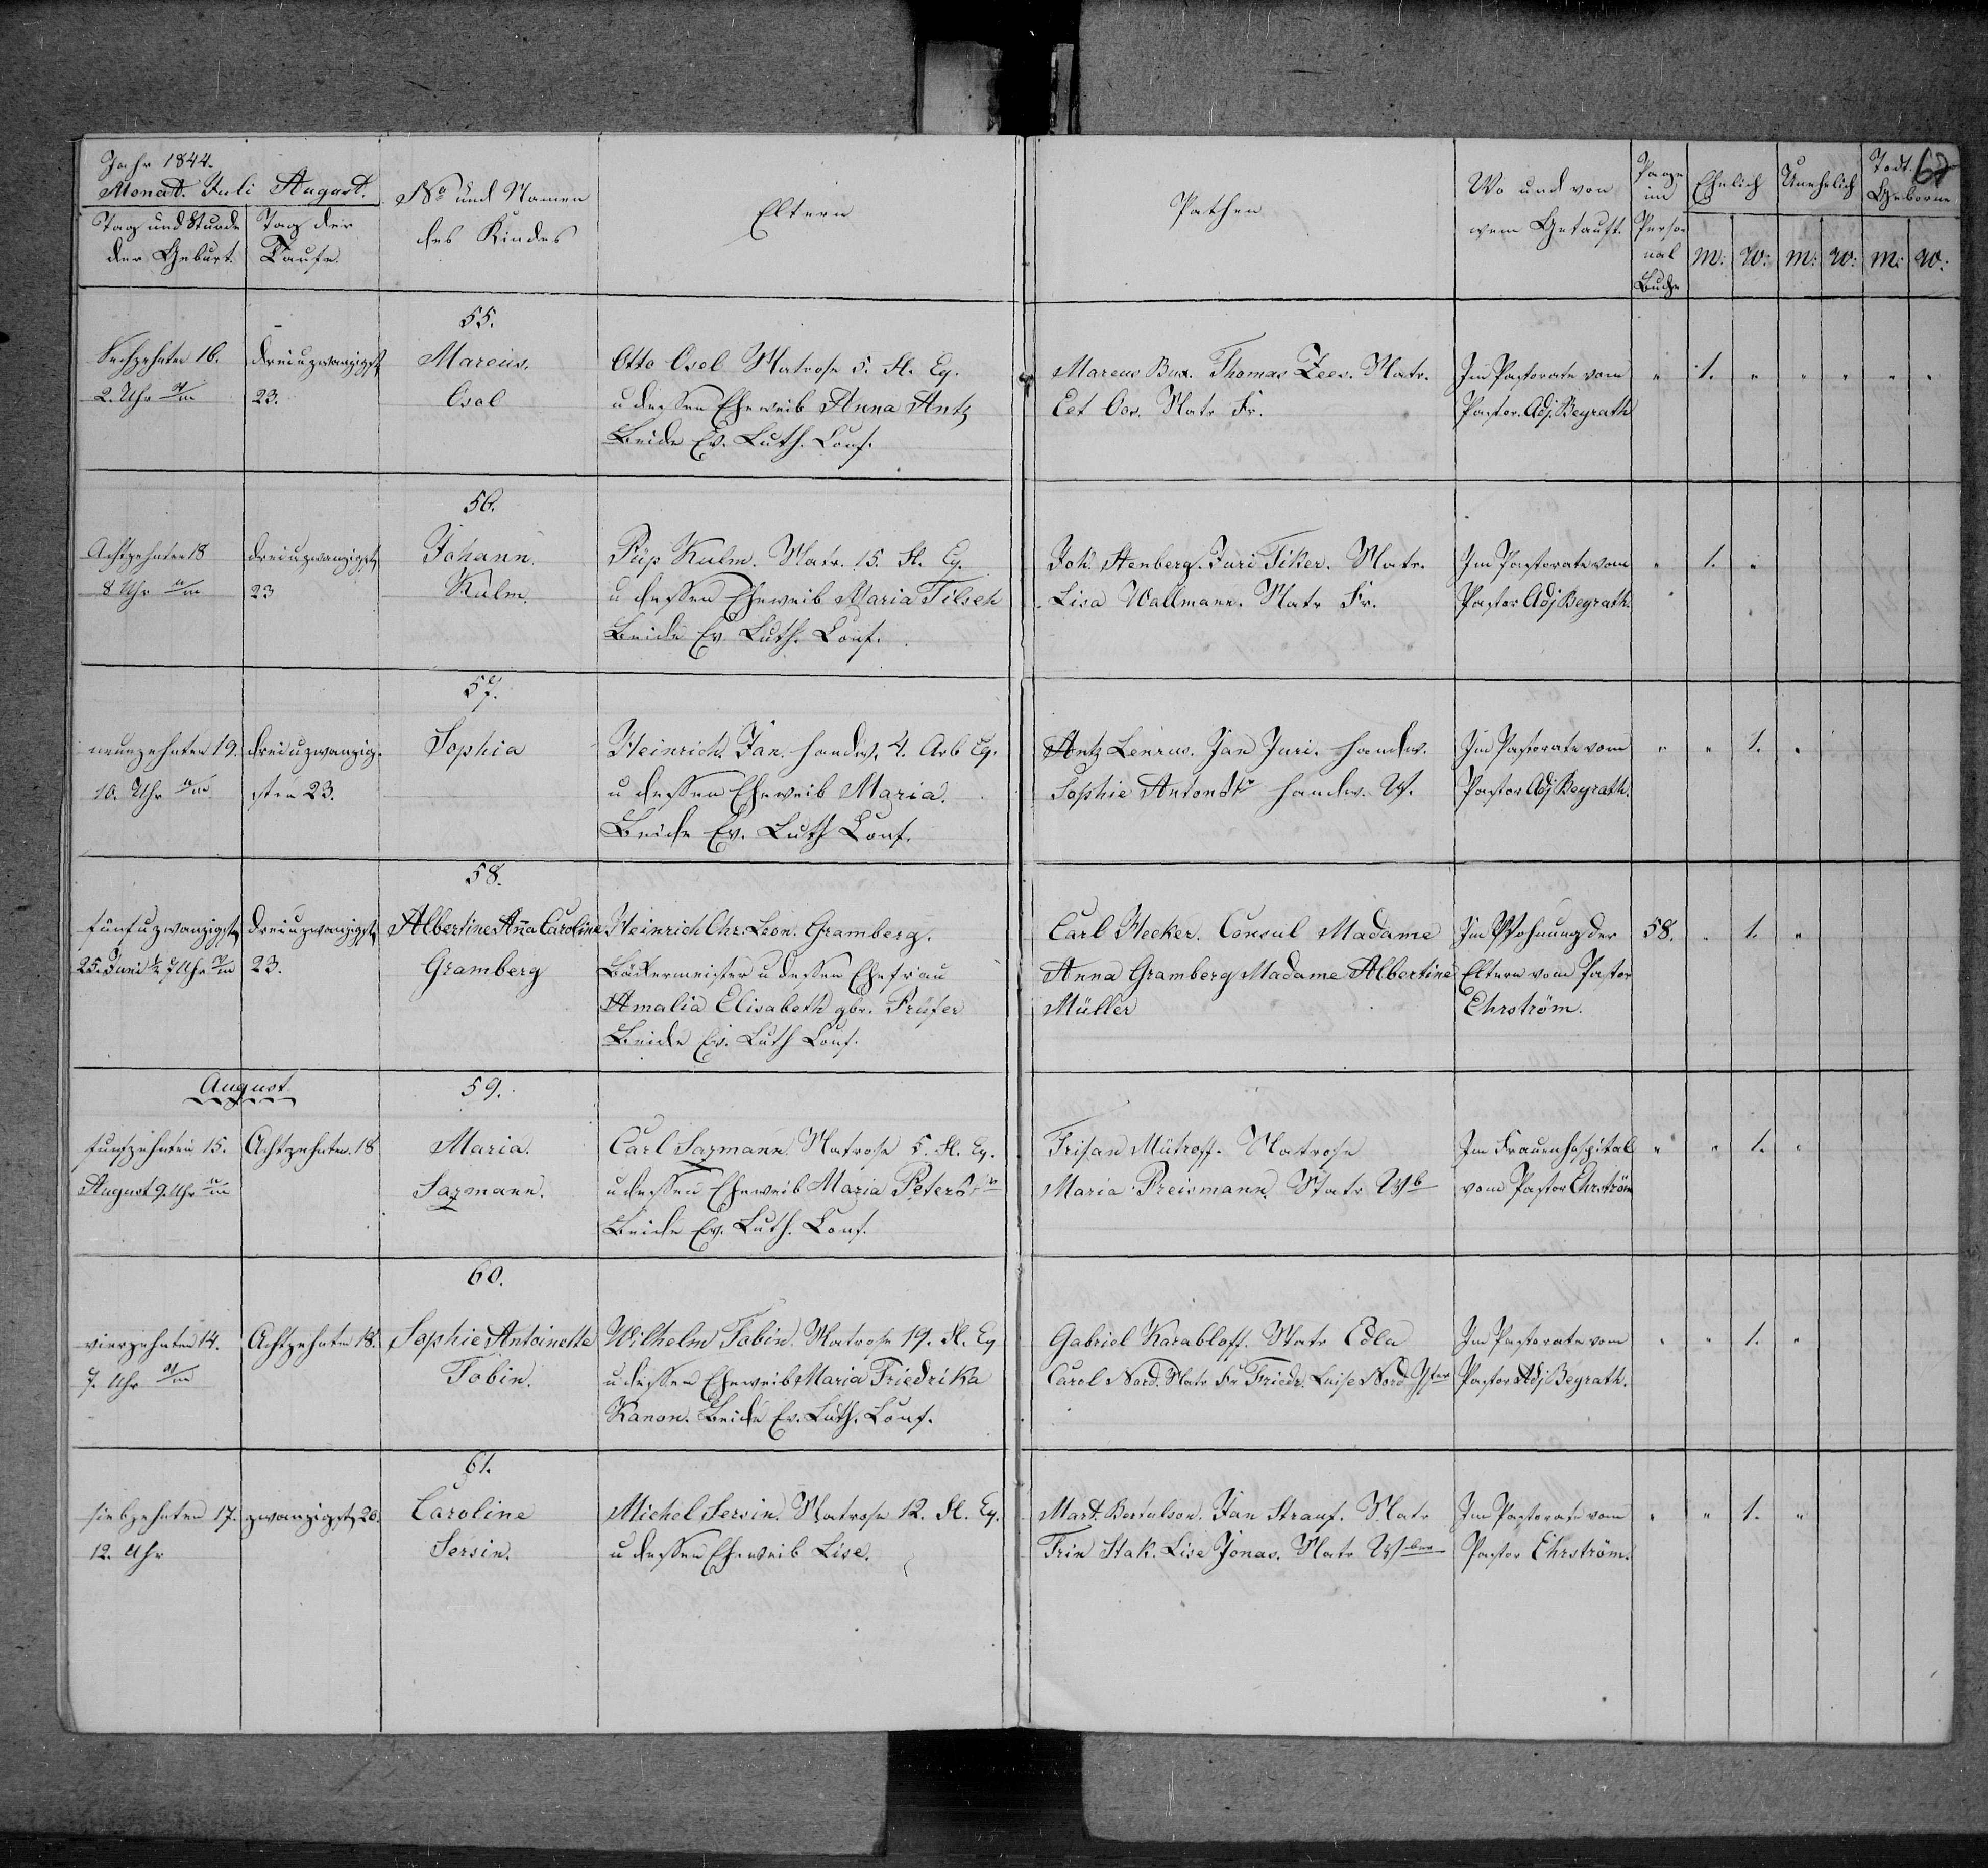 Jahr 1844.
Monat. Juli August.
Tag und Stunde der Geburt.
Tag der Taufe.
No und Namen des Kindes
Eltern
Pathen
Wo und von wem Getauft.
Page im Personal Buche
Ehelich
Unehelich
Todt. Geborne
67
m: w: m: w: m: w:
55.
Sechzehnten 16. dreiuzwanzigst Marcus. Otto Osol Matrose 5. Fl. Eq. Marcus Bux. Thomas Zees. Matr. Im Pastorate vom " 1. " " " " "
2. Uhr 23. Osol u dessen Eheweib Anna Antz Eet Oos. Matr Fr. Pastor. Adj. Beyrath
Beide Ev. Luth. Conf.
56.
Achtzehnten 18 dreiuzwanzigst Johann. Püp Kulm. Matr. 15. Fl. Eq. Joh. Stenberg. Juri Fiker. Matr. Im Pastorate vom " 1. "
8 Uhr 23 Kulm. u dessen Eheweib Maria Tilsch Lisa Wallmann. Matr Fr. Pastor Adj Beyrath.
Beide Ev. Luth. Conf.
57.
neunzehnten 19. dreiuzwanzig- Sophia Heinrich. Jan. Handw. 4. Arb Eq. Antz Lenrus. Jan Juri. Handw. Im Pastorate vom " " 1. "
10. Uhr sten 23. u dessen Eheweib Maria. Sophie Antonstr Handw. W. Pastor Adj Beyrath.
Beide Ev. Luth Conf.
58.
fünfuzwanzigst dreiuzwanzigst Albertine Anna Caroline Heinrich Chr. Leon. Gramberg. Carl Hecker. Consul Madame Im Wohnung der 58. " 1. "
25. Juni ½ 7 Uhr 23. Gramberg Bäckermeister u dessen Ehefrau Anna Gramberg Madame Albertine Eltern vom Pastor
Amalia Elisabeth gbr. Prüfer Müller Ehrström.
Beide Ev. Luth Conf.
August 59.
fünfzehnten 15. Achtzehnten. 18 Maria. Carl Sazmann. Matrose 5. Fl. Eq. Frisan Mütroff. Matrose Im Frauenhospital " " 1. "
August 9. Uhr Sazmann. u dessen Eheweib Maria Peters Maria Preismann. Matr Wb vom Pastor Ehrström
Beide Ev. Luth. Conf.
60.
vierzehnten 14. Achtzehnten 18. Sophie Antoinette Wilhelm Tobin. Matrose 19. Fl. Eq Gabriel Karabloff. Matr Edla Im Pastorate vom " " 1. "
7. Uhr Tobin. u dessen Eheweib Maria Friedrika Carol Nord. Matr Fr Friedr. Luise Nord Jfer Pastor Adj Beyrath.
Kanon. Beide Ev. Luth. Conf.
61.
siebzehnten 17. zwanzigst 20. Caroline Michel Sersin. Matrose 12. Fl. Eq. Mart. Bertulson. Jan Strauf. Matr Im Pastorate vom " " 1. "
12. Uhr Sersin. u dessen Eheweib Lise. Trin Stak. Lise Jonas. Matr Wber Pastor Ehrström.